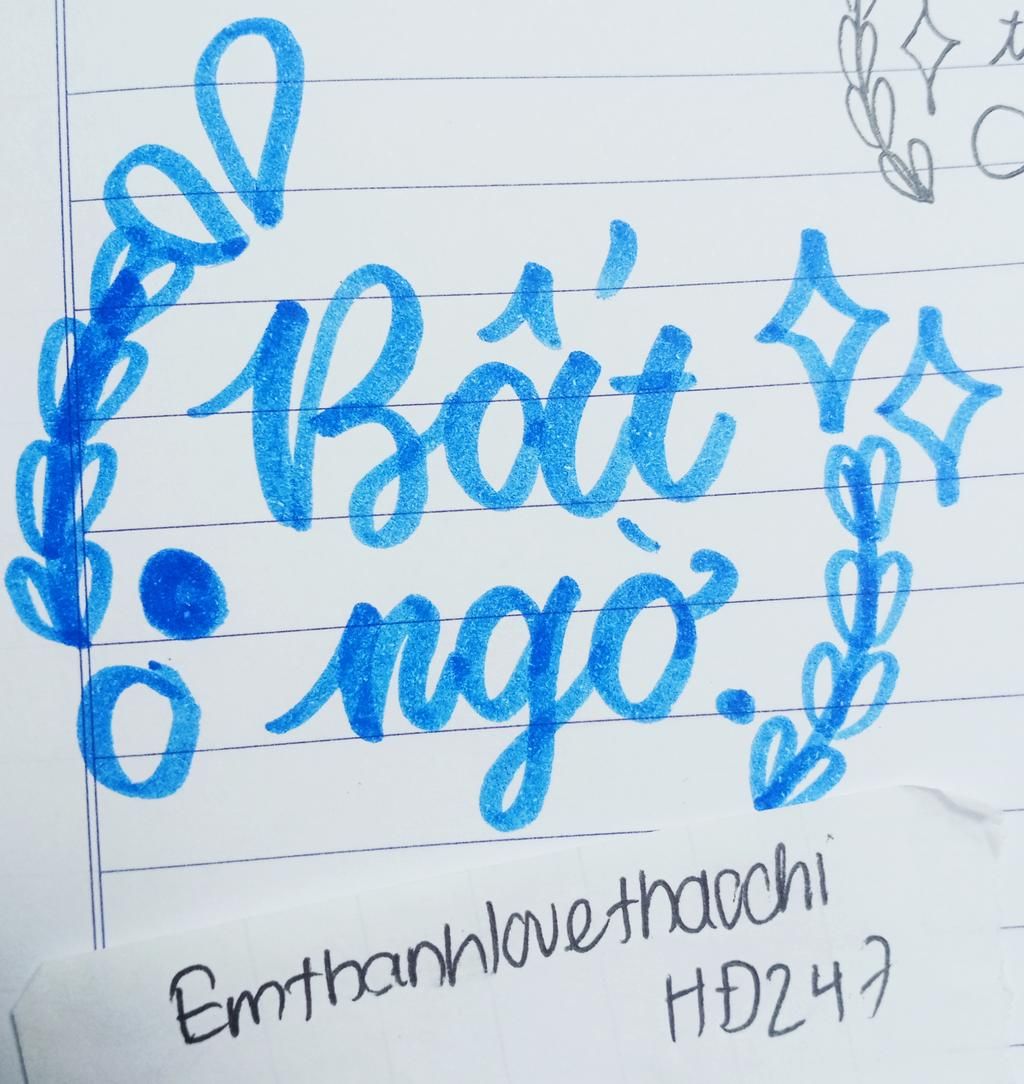 Bất
ngờ.
Emthanhlovethaochi
HĐ247